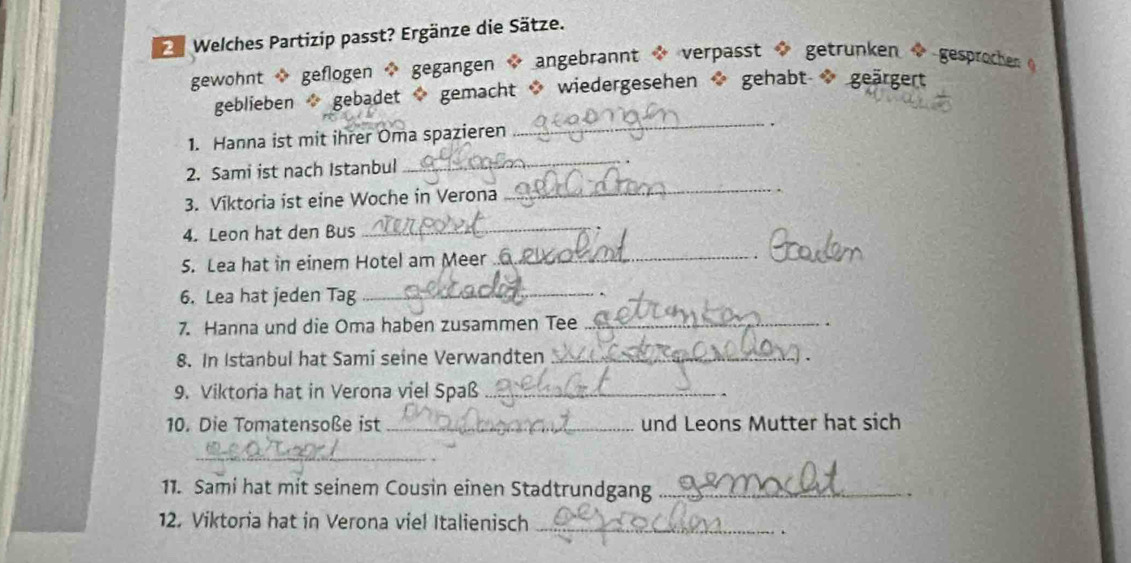 2 Welches Partizip passt? Ergänze die Sätze.
gewohnt ❖ geflogen ❖ gegangen ❖ angebrannt ❖ verpasst ❖ getrunken ❖ gesprochen
geblieben ❖ gebadet ❖ gemacht ❖ wiedergesehen ❖ gehabt ❖ geärgert
1. Hanna ist mit ihrer Oma spazieren gegangen.
2. Sami ist nach Istanbul geflogen.
3. Viktoria ist eine Woche in Verona .
4. Leon hat den Bus verpasst.
5. Lea hat in einem Hotel am Meer gewohnt.
6. Lea hat jeden Tag gebadet.
7. Hanna und die Oma haben zusammen Tee getrunken.
8. In Istanbul hat Sami seine Verwandten .
9. Viktoria hat in Verona viel Spaß gehabt.
10. Die Tomatensoße ist und Leons Mutter hat sich
.
11. Sami hat mit seinem Cousin einen Stadtrundgang gemacht.
12. Viktoria hat in Verona viel Italienisch .